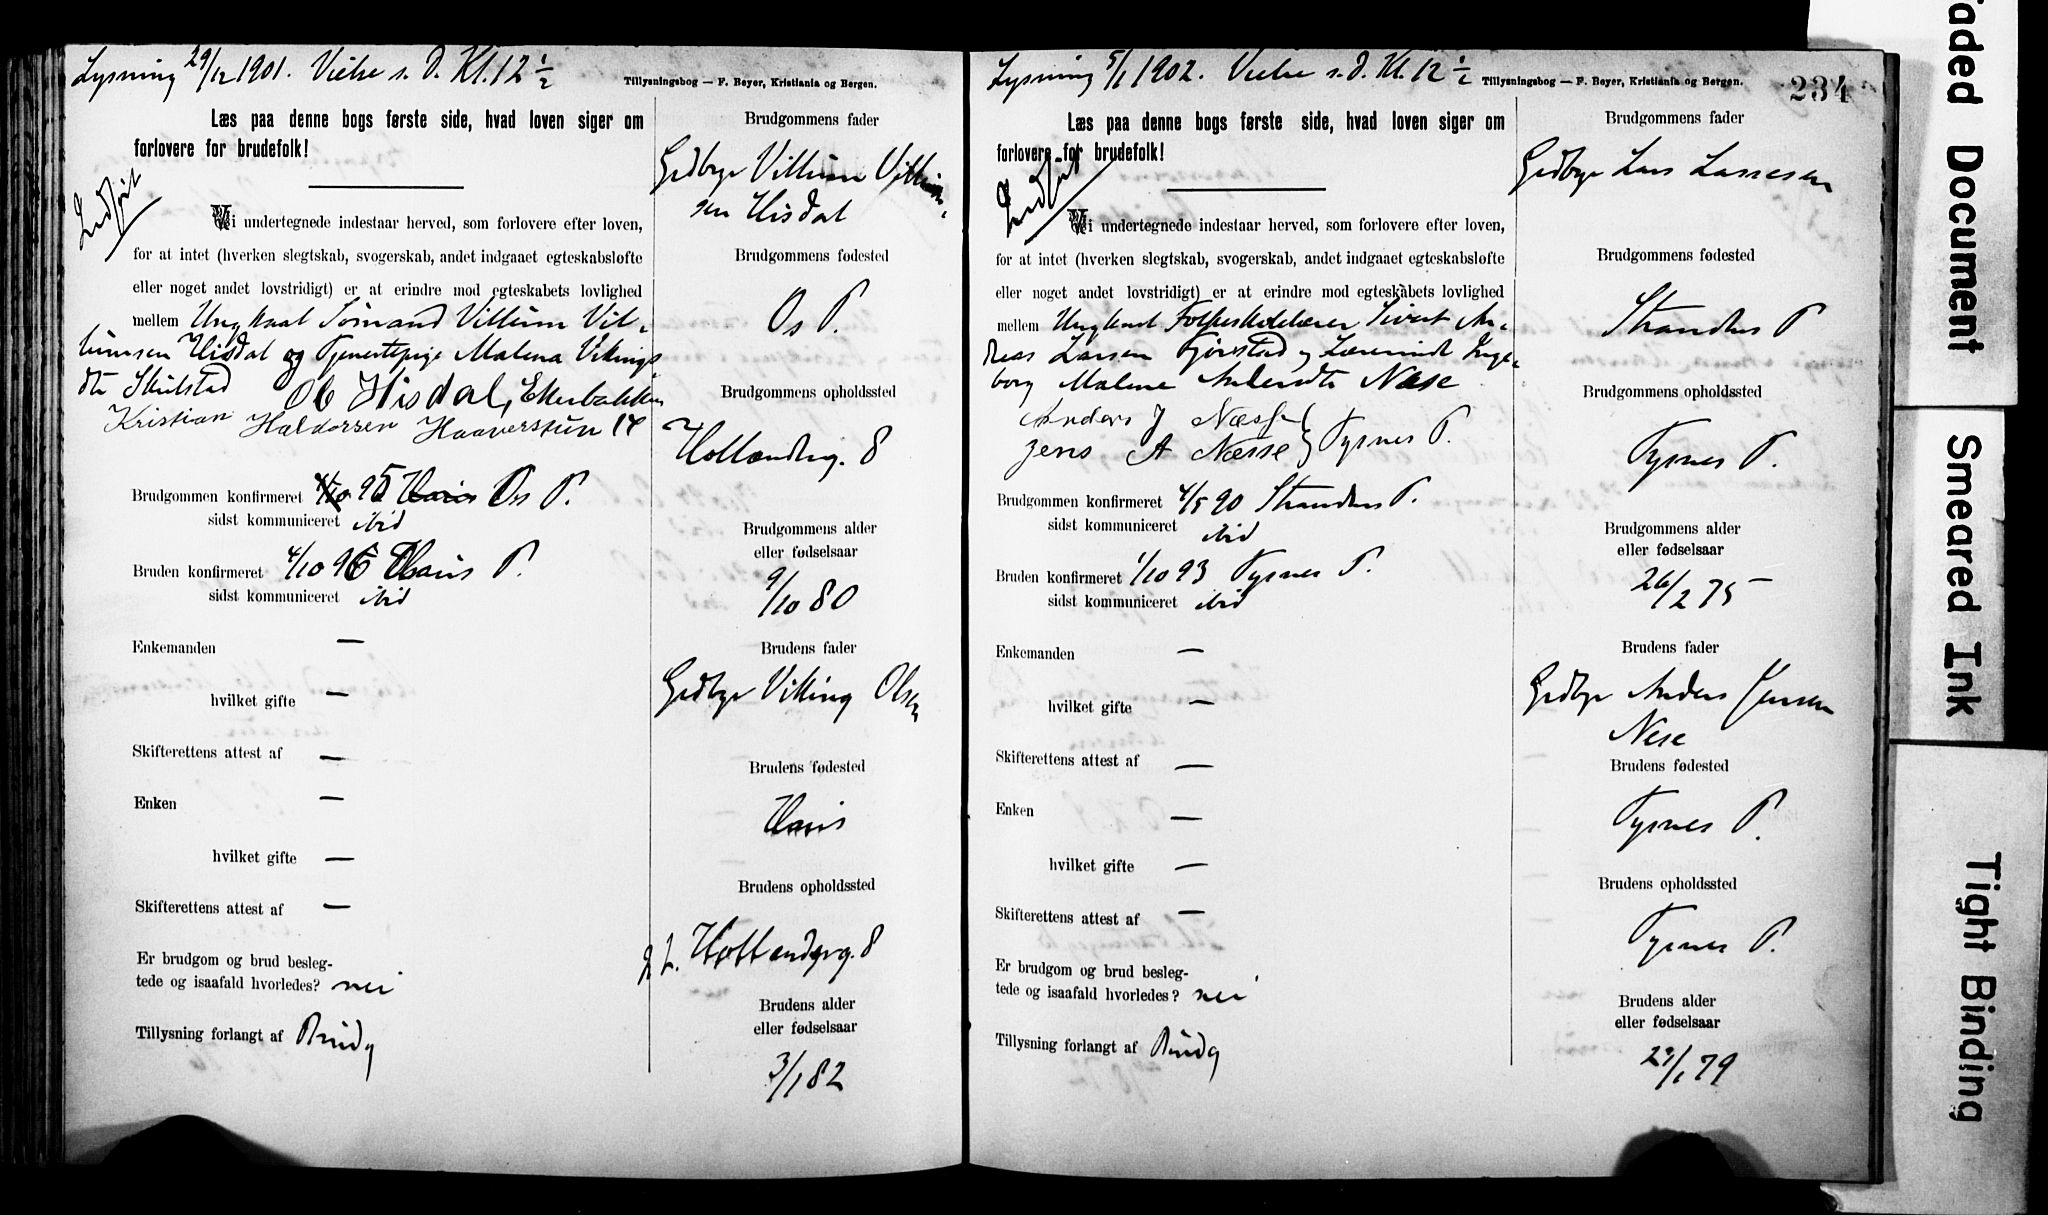 Lysning 29/12 1901. Vielse s. D. Kl. 12 1/2
Tillysningsbog — F. Beyer, Kristiania og Bergen.
Læs paa denne bogs første side, hvad loven siger om
forlovere for brudefolk!
Indført
Vi undertegnede indestaar herved, som forlovere efter loven,
for at intet (hverken slegtskab, svogerskab, andet indgaaet egteskabsløfte
eller noget andet lovstridigt) er at erindre mod egteskabets lovlighed
mellem Ungkarl Sømand Villum Vil-
lumsen Hisdal og Tjenestepige Malena Vikings
dtr Skulstad
Ob Hisdal,
Kristian Haldorsen 17
Brudgommen konfirmeret 95 Os P.
sidst kommuniceret ikke
Bruden konfirmeret 4/10 96 Haus P.
sidst kommuniceret
Enkemanden —
hvilket gifte —
Skifterettens attest af —
Enken —
hvilket gifte —
Skifterettens attest af —
Er brudgom og brud besleg-
tede og isaafald hvorledes? nei
Tillysning forlangt af Brudg
Brudgommens fader
Grdbgr Villum Villum-
sen Hisdal
Brudgommens fødested
Os P.
Brudgommens opholdssted
Hollændrg. 8
Brudgommens alder
eller fødselsaar
9/10 80
Brudens fader
Grdbgr Viking Olsen
Brudens fødested
Haus
Brudens opholdssted
Hollænderg. 8
Brudens alder
eller fødselsaar
3/1 82
Lysning 5/1 1902. Vielse s. D. Kl. 12 1/2
Tillysningsbog — F. Beyer, Kristiania og Bergen.
234
Læs paa denne bogs første side, hvad loven siger om
forlovere for brudefolk!
Indført
Vi undertegnede indestaar herved, som forlovere efter loven,
for at intet (hverken slegtskab, svogerskab, andet indgaaet egteskabsløfte
eller noget andet lovstridigt) er at erindre mod egteskabets lovlighed
mellem Ungkarl Folkeskolelærer Sivert An-
dreas Larsen Tjørstad og Lærerinde Inge-
borg Malene Andersdtr Nese
Anders J Næsse
Jens A Næsse } Tysnes P.
Brudgommen konfirmeret 4/5 90 P.
sidst kommuniceret
Bruden konfirmeret 1/10 93 Tysnes P.
sidst kommuniceret
Enkemanden —
hvilket gifte —
Skifterettens attest af —
Enken —
hvilket gifte —
Skifterettens attest af —
Er brudgom og brud besleg-
tede og isaafald hvorledes? nei
Tillysning forlangt af Brudg
Brudgommens fader
Grdbgr Lars Larsen
Brudgommens fødested
P
Brudgommens opholdssted
Tysnes P.
Brudgommens alder
eller fødselsaar
26/2 75
Brudens fader
Grdbgr Anders Jensen
Nese
Brudens fødested
Tysnes P.
Brudens opholdssted
Tysnes P.
Brudens alder
eller fødselsaar
29/1 79
Faded Document
Smeared Ink
Tight Binding